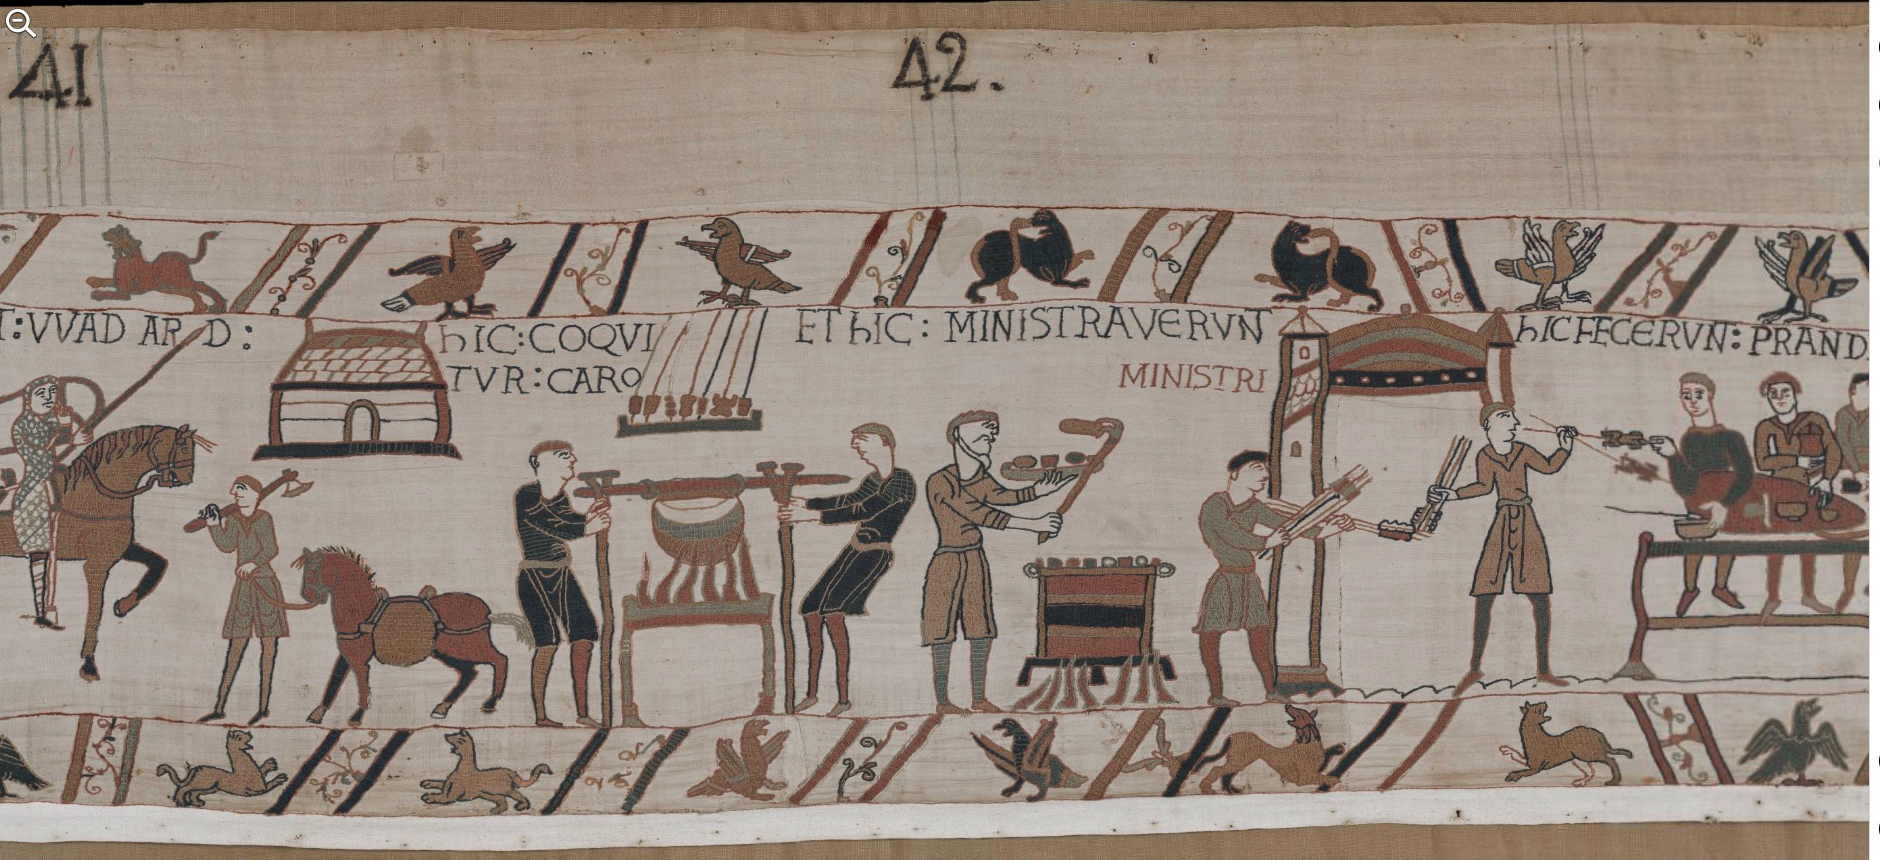 41
42.
T:VVAD ARD:
hIC:COQVI
TVR:CARO
ET hIC: MINISTRAVERVNT
MINISTRI
hIC FECERVN: PRAND